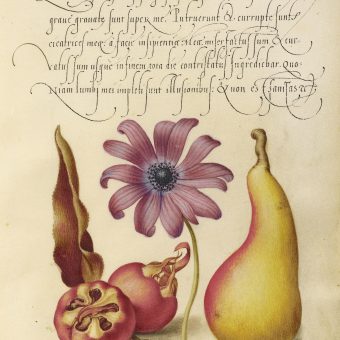 graue grauatę sunt super me. Putruerunt & corruptę sunt
cicatrices meę: a facie insipientię meę. Miser factus sum & cur-
uatus sum usque in finem: tota die contristatus ingrediebar. Quo-
niam lumbi mei impleti sunt illusionibus: & non est sanitas